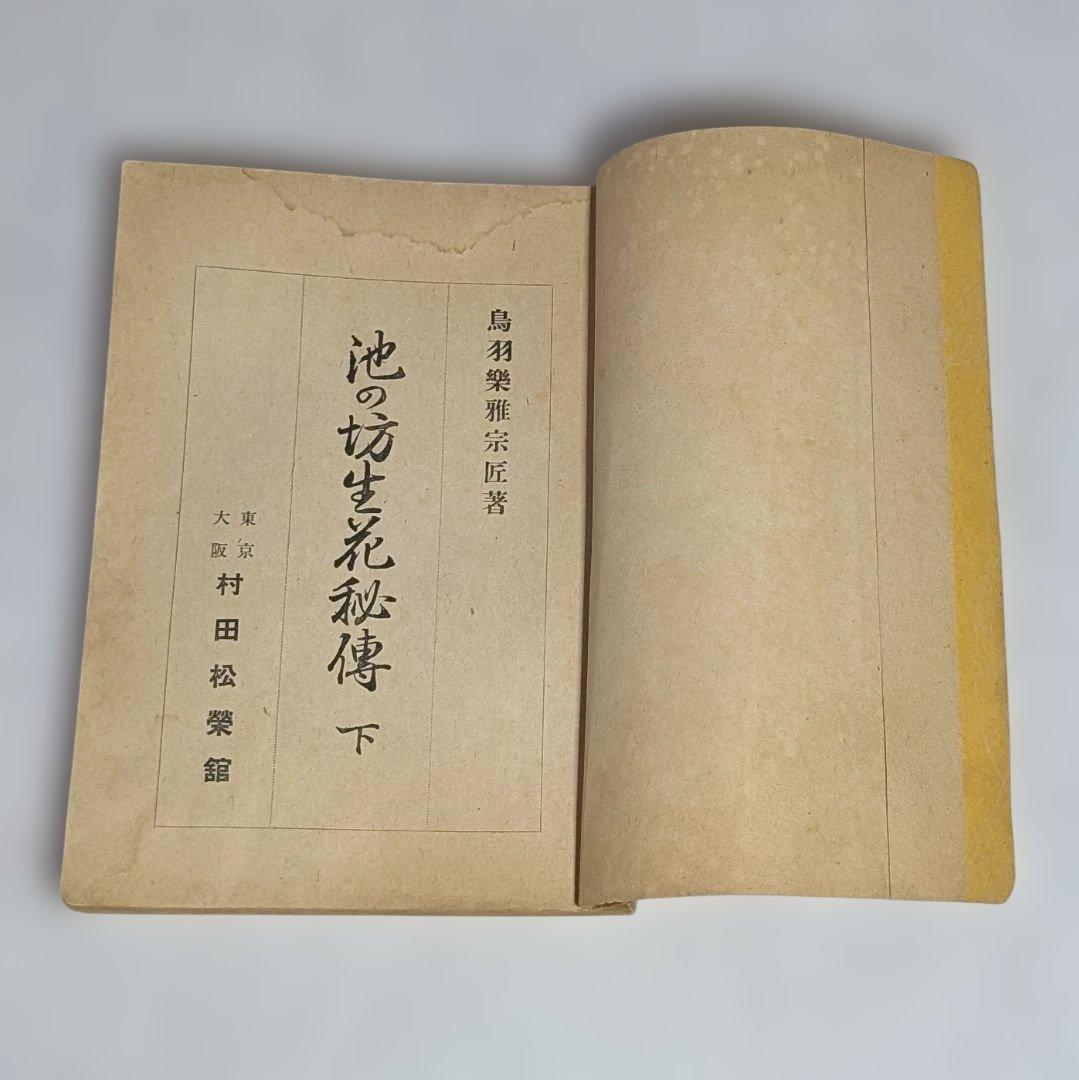 鳥羽樂雅宗匠著
池の坊生花秘傳 下
東京
大阪
村田松榮舘